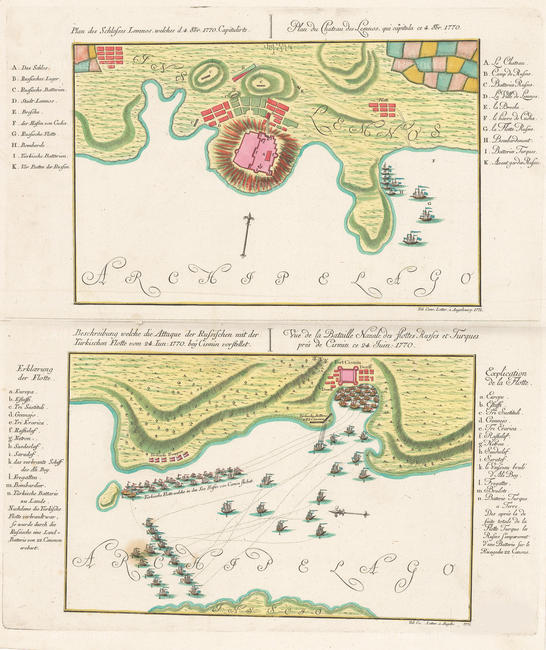 Plan des Schlosses Lemnos, welches d. 4 8br. 1770. Capitulirte.
Plan du Chateau du Lemnos, qui capitula ce 4. 8br. 1770.
A. Das Schloss.
B. Russisches Lager.
C. Russische Batterien.
D. Stadt Lemnos
E. Bresche
F. der Hafen von
G. Russische Flotte
H. Bombarde
I. Türkische Batterien.
K. der Russen
INS
LEMNOS
A. Le Chateau
B. Camp de Russes
C. Batteries Russes.
D. La Ville de Lemnos
E. La Breche
F. le havre de
G. La Flotte Russe.
H. Bombardement
I. Batteries Turques.
K. Avant garde Russe.
ARCHIPELAGO
Tob. Conr. Lotter, à Augsbourg. 1771.
Beschreibung welche die Attaque der Russischen mit der
Türkischen Flotte vom 24. Iun: 1770. bey Cismin vorstellet.
Vüe de la Bataille Navale des flottes Russes et Turques
près de Cismin ce 24. Juin. 1770.
Erklærung
der Flotte.
a. Europa.
b. Eſtaffi.
c. Tri Swætitili.
d. Gennajo.
e. Tri Ererica
f. Rostislaf.
g. Netron.
h. Swætoslaf
i. Saratof.
k. das verbrante Schiff
des Ali Bey.
l. Fregatten
m. Bombardier.
n. Türkische Batterie
zu Lande.
Nachdeme die Türkische
Flotte verbrant war,
so wurde durch die
Russische eine Land-
Batterie von 22 Canonen
erobert.
Fort Cismin
Türkische Flotte welche in das See Hafen von Cismin flüchtet
Explication
de la Flotte.
a. Europe
b. Eſtaffi
c. Tri Swætitili
d. Gennais
e. Tri Ererica
f. Rostislaf.
g. Netron
h. Swætoslaf.
i. Saratof
k. le Vaisseau brulé
d'Ali Bey
l. Fregatte.
m. Brulot
n. Batterie Turque
à Terre
Dés après la dé-
faite totale de la
Flotte Turque les
Russes s'emparerent
d'une Batterie sur le
Rivage de 22 Canons.
ARCHIPELAGO
INS SCIO
Tob. Co. Lotter à Augsb. 1771.